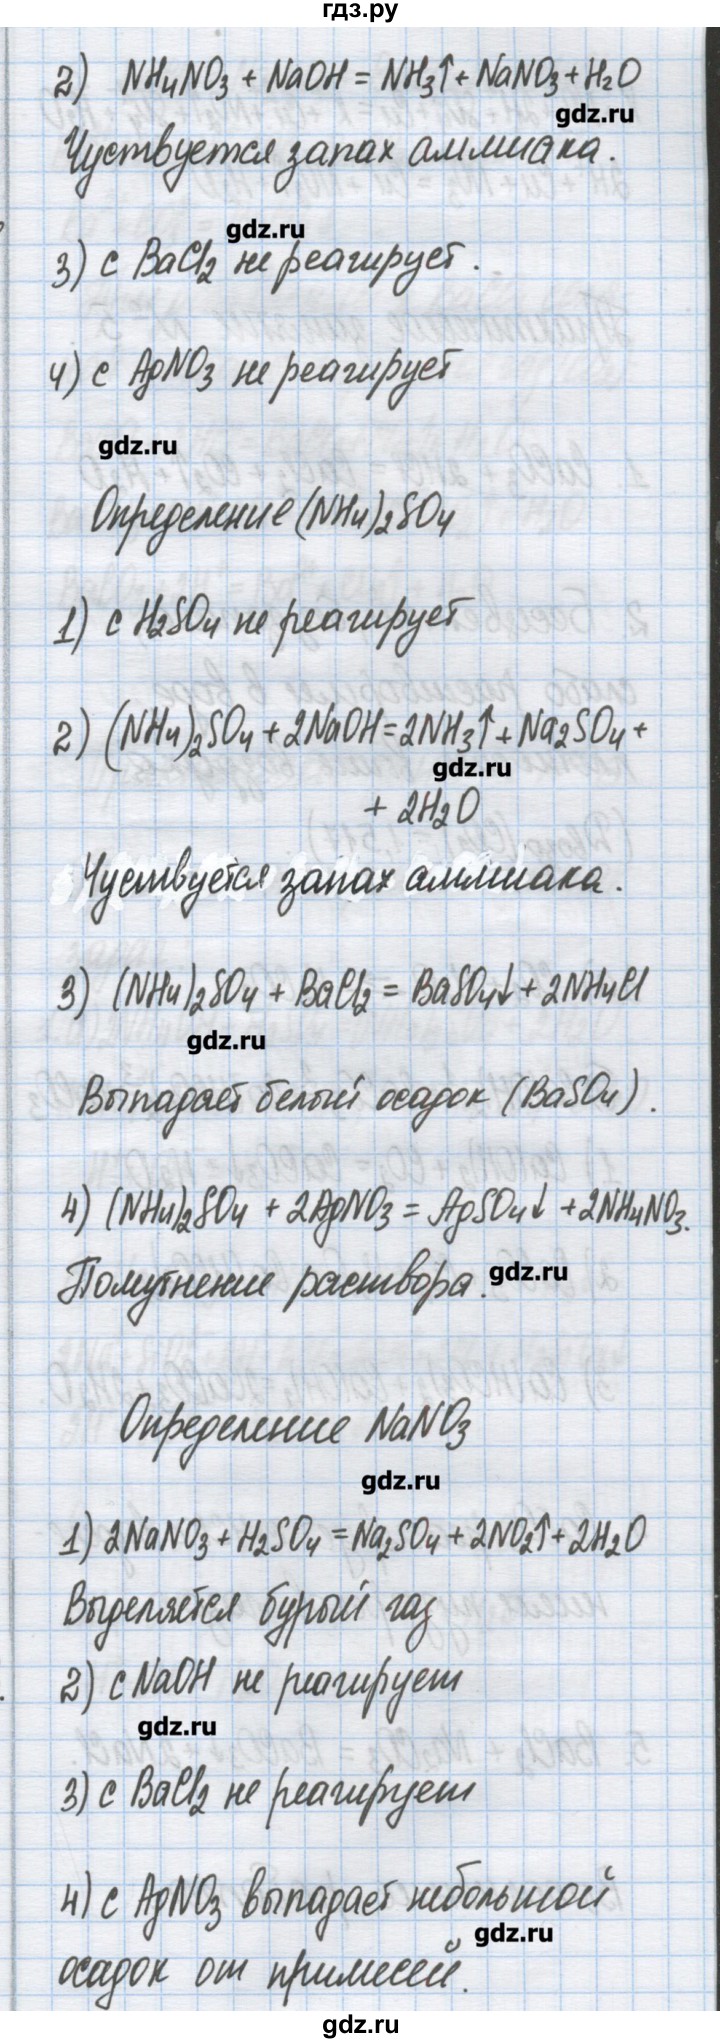 гдз.ру
2) NH4NO3 + NaOH = NH3↑ + NaNO3 + H2O
gdz.ru
Чуствуется запах аммиака.
gdz.ru
3) с BaCl2 не реагирует.
4) с AgNO3 не реагирует
gdz.ru
Определение (NH4)2SO4
1) с H2SO4 не реагирует
2) (NH4)2SO4 + 2NaOH = 2NH3↑ + Na2SO4 +
gdz.ru
+ 2H2O
Чуствуется запах аммиака.
3) (NH4)2SO4 + BaCl2 = BaSO4↓ + 2NH4Cl
gdz.ru
Выпадает белый осадок (BaSO4).
4) (NH4)2SO4 + 2AgNO3 = AgSO4↓ + 2NH4NO3.
Помутнение раствора.
gdz.ru
Определение NaNO3
gdz.ru
1) 2NaNO3 + H2SO4 = Na2SO4 + 2NO2↑ + 2H2O
Выделяется бурый газ
2) с NaOH не реагирует
gdz.ru
3) с BaCl2 не реагирует
4) с AgNO3 выпадает небольшой
gdz.ru
осадок от примесей.
gdz.ru